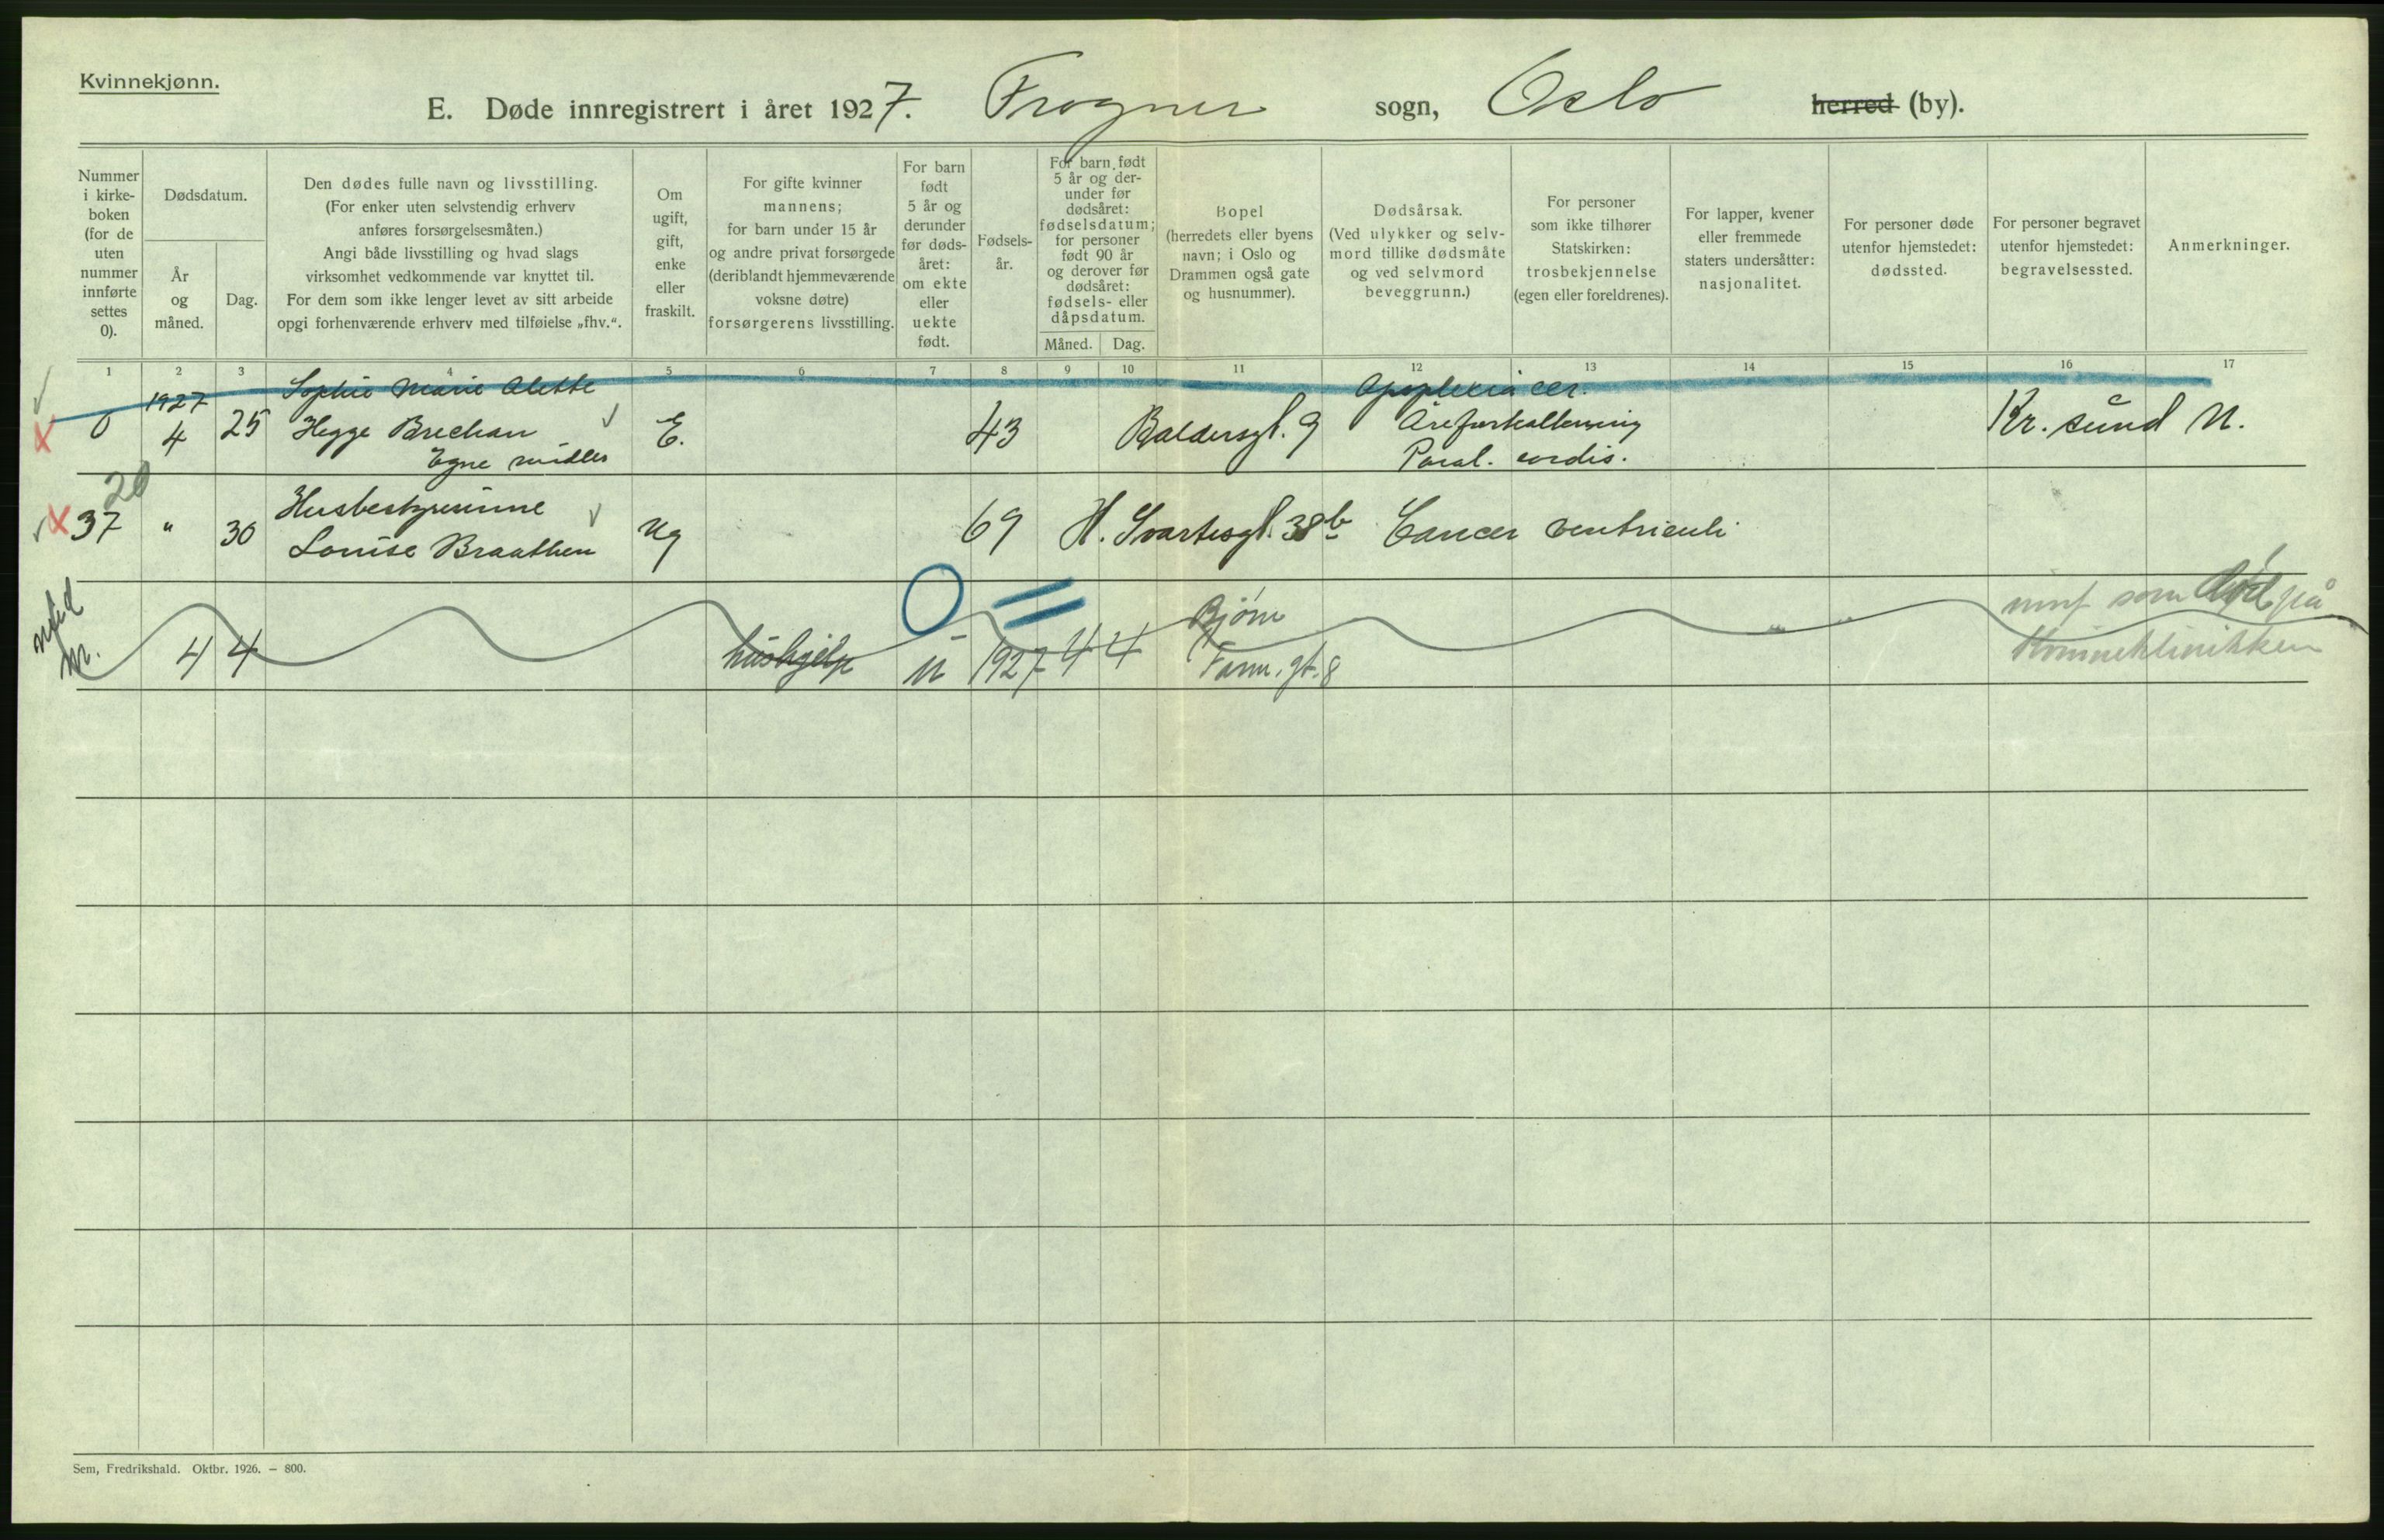 Kvinnekjønn.
E. Døde innregistrert i året 1927. Frogner sogn, Oslo herred (by).
Nummer i kirke-boken (for de uten nummer innførte settes 0).
Dødsdatum.
År og måned.
Dag.
Den dødes fulle navn og livsstilling.
(For enker uten selvstendig erhverv
anføres forsørgelsesmåten.)
Angi både livsstilling og hvad slags
virksomhet vedkommende var knyttet til.
For dem som ikke lenger levet av sitt arbeide
opgi forhenværende erhverv med tilføielse „fhv.“.
Om
ugift,
gift,
enke
eller
fraskilt.
For gifte kvinner
mannens;
for barn under 15 år
og andre privat forsørgede
(deriblandt hjemmeværende
voksne døtre)
forsørgerens livsstilling.
For barn
født
5 år og
derunder
før døds-
året:
om ekte
eller
uekte
født.
Fødsels-
år.
For barn født
5 år og der-
under før
dødsåret:
fødselsdatum;
for personer
født 90 år
og derover før
dødsåret:
fødsels- eller
dåpsdatum.
Måned. Dag.
Bopel
(herredets eller byens
navn; i Oslo og
Drammen også gate
og husnummer).
Dødsårsak.
(Ved ulykker og selv-
mord tillike dødsmåte
og ved selvmord
beveggrunn.)
For personer
som ikke tilhører
Statskirken:
trosbekjennelse
(egen eller foreldrenes).
For lapper, kvener
eller fremmede
staters undersåtter:
nasjonalitet.
For personer døde
utenfor hjemstedet:
dødssted.
For personer begravet
utenfor hjemstedet:
begravelsessted.
Anmerkninger.
1 2 3 4 5 6 7 8 9 10 11 12 13 14 15 16 17
1927 Sophie Marie Alette Apoplexia cer.
0 4 25 Hegge Brechan E. 43 Baldersgt. 9 Åreforkalkning Kr. sund N.
Egne midler Paral. cordis.
20
Husbestyrerinne
37 " 30 Louise Braathen Ug 69 H. Svartesgt. 38b Cancer ventriculi
Bjørn
4 4 hushjelp u 1927 4 4 Farm. gt. 8
som død på
Kvinneklinikken
Sem, Fredrikshald. Oktbr. 1926. — 800.